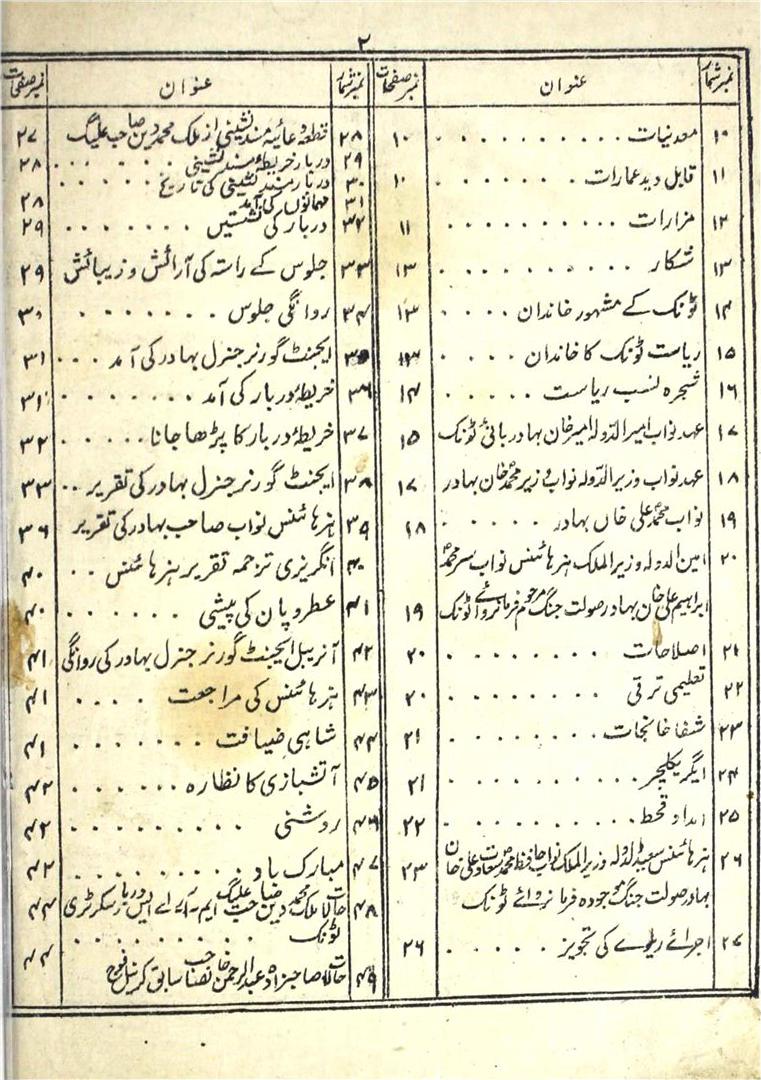 ۲
نمبر شمار عنوان نمبر صفحات
۱۰ معدنیات ۱۰
۱۱ قابل دید عمارات ۱۰
۱۲ مزارات ۱۱
۱۳ شکار ۱۳
۱۴ ٹونک کے مشہور خاندان ۱۳
۱۵ ریاست ٹونک کا خاندان ۱۳
۱۶ شجرہ نسب ریاست ۱۴
۱۷ عہد نواب امیر الدولہ امیر خان بہادر بانیٔ ٹونک ۱۵
۱۸ عہد نواب وزیر الدولہ نواب وزیر محمد خان بہادر ۱۷
۱۹ نواب محمد علی خاں بہادر ۱۸
۲۰ امین الدولہ وزیر الملک ہز ہائنس نواب سر محمد
ابراہیم علی خان بہادر صولت جنگ مرحوم فرمانروائے ٹونک ۱۹
۲۱ اصلاحات ۲۰
۲۲ تعلیمی ترقی ۲۰
۲۳ شفا خانجات ۲۱
۲۴ ایگریکلچر ۲۱
۲۵ امداد قحط ۲۲
۲۶ ہز ہائنس سعید الدولہ وزیر الملک نواب حافظ محمد سعادت علی خان ۲۳
بہادر صولت جنگ موجودہ فرمانروائے ٹونک
۲۷ اجرائے ریلوے کی تجویز ۲۶
نمبر شمار عنوان نمبر صفحات
۲۸ قطعہ دعائیہ مسند نشینی از ملک محمد دین صاحب علیگ ۲۷
۲۹ دربار خریطۂ مسند نشینی ۲۸
۳۰ دربار مسند نشینی کی تاریخ
۳۱ مہمانوں کی آمد ۲۸
۳۲ دربار کی نشستیں ۲۹
۳۳ جلوس کے راستہ کی آرائش و زیبائش ۲۹
۳۴ روانگی جلوس ۳۰
۳۵ ایجنٹ گورنر جنرل بہادر کی آمد ۳۱
۳۶ خریطۂ دربار کی آمد ۳۱
۳۷ خریطۂ دربار کا پڑھا جانا ۳۲
۳۸ ایجنٹ گورنر جنرل بہادر کی تقریر ۳۳
۳۹ ہز ہائنس نواب صاحب بہادر کی تقریر ۳۶
۴۰ انگریزی ترجمہ تقریر ہز ہائنس ۴۰
۴۱ عطر و پان کی پیشی ۴۰
۴۲ آنریبل ایجنٹ گورنر جنرل بہادر کی روانگی ۴۱
۴۳ ہز ہائنس کی مراجعت ۴۱
۴۴ شاہی ضیافت ۴۱
۴۵ آتشبازی کا نظارہ ۴۲
۴۶ روشنی ۴۲
۴۷ مبارک باد ۴۳
۴۸ حالات ملک محمد دین صاحب علیگ ایم۔آر۔اے۔ایس دربار سکرٹری ۴۴
ٹونک
۴۹ حالات صاحبزادہ عبدالرحمن خانصاحب سابق کرنیل فوج ۴۴